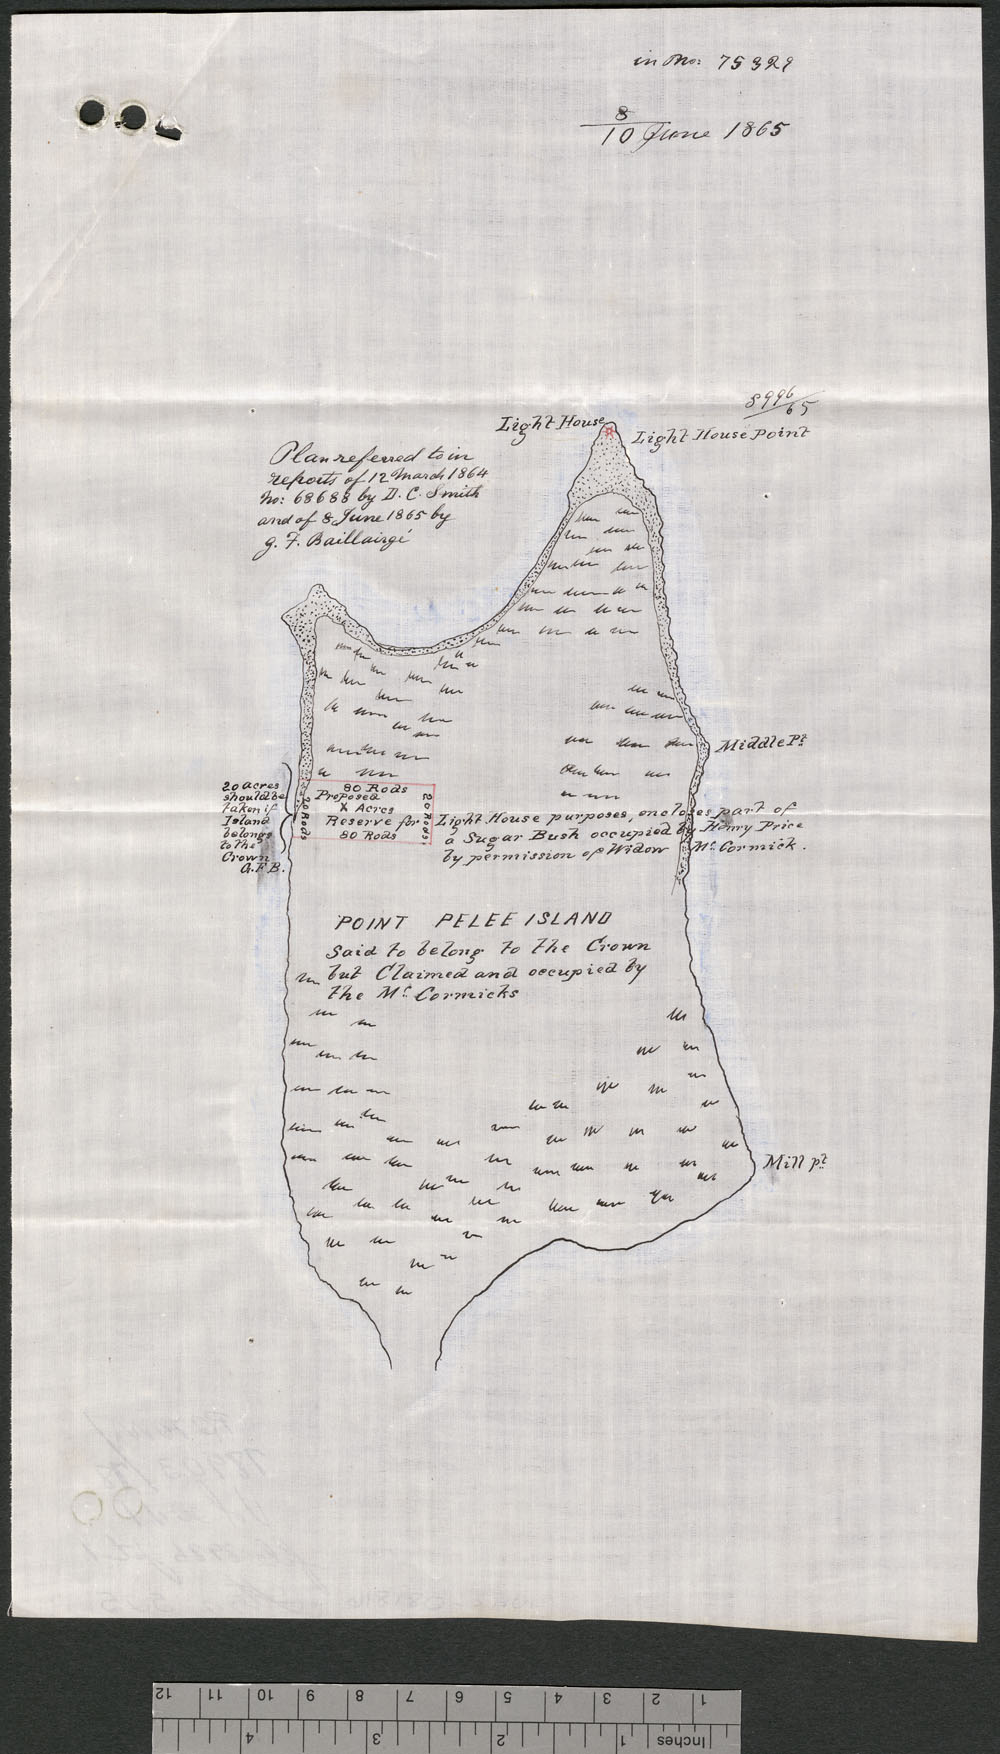 in No: 75329
8
10 June 1865
8996
65
Light House
Light House Point
Plan referred to in
reports of 12 March 1864
No: 68688 by D. C. Smith
and of 8 June 1865 by
G. F. Baillairgé
Middle Pt
20 acres
should be
taken if
Island
belongs
to the
Crown
G.F.B.
80 Rods
Proposed
X Acres
Reserve for
80 Rods
20 Rods
20 Rods
Light House purposes, encloses part of
a Sugar Bush occupied by Henry Price
by permission of Widow Mc Cormick.
POINT PELEE ISLAND
Said to belong to the Crown
but Claimed and occupied by
the Mc Cormicks
Mill pt
12 11 10 9 8 7 6 5 4 3 2 1
4 3 2 1 Inches